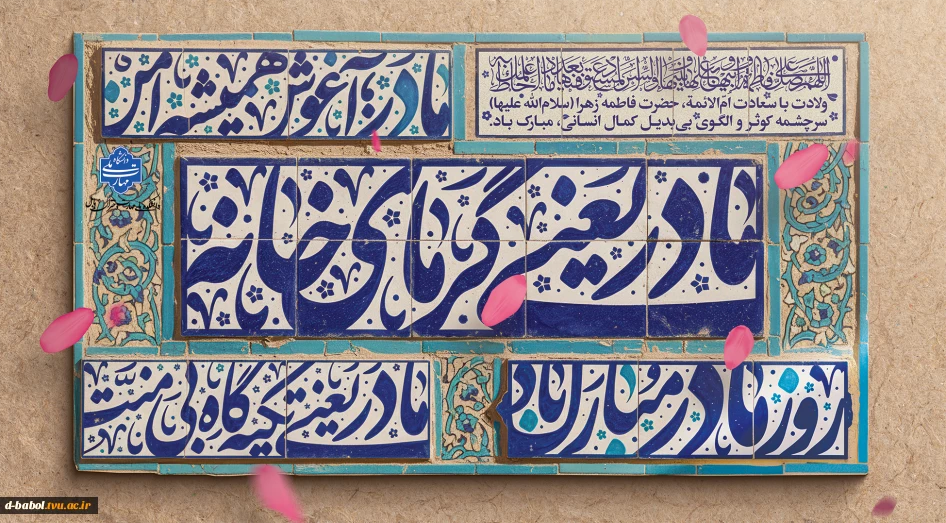 اللهم صل علی فاطمة و ابیها و بعلها و بنیها و السر المستودع فیها بعدد ما احاط به علمک
ولادت با سعادت ام‌الائمة، حضرت فاطمه زهرا (سلام‌الله علیها)
سرچشمه کوثر و الگوی بی‌بدیل کمال انسانی، مبارک باد.
مادر؛ آغوش همیشه امن
دانشگاه
ملی
مهارت
مادر یعنی گرمای خانه
روز مادر مبارک باد
مادر یعنی تکیه‌گاه بی‌منت
d-babol.tvu.ac.ir